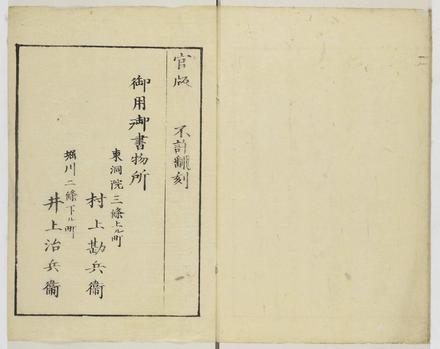 官版　不許飜刻
御用御書物所
東洞院三條上ル町
村上勘兵衞
堀川二條下ル町
井上治兵衞